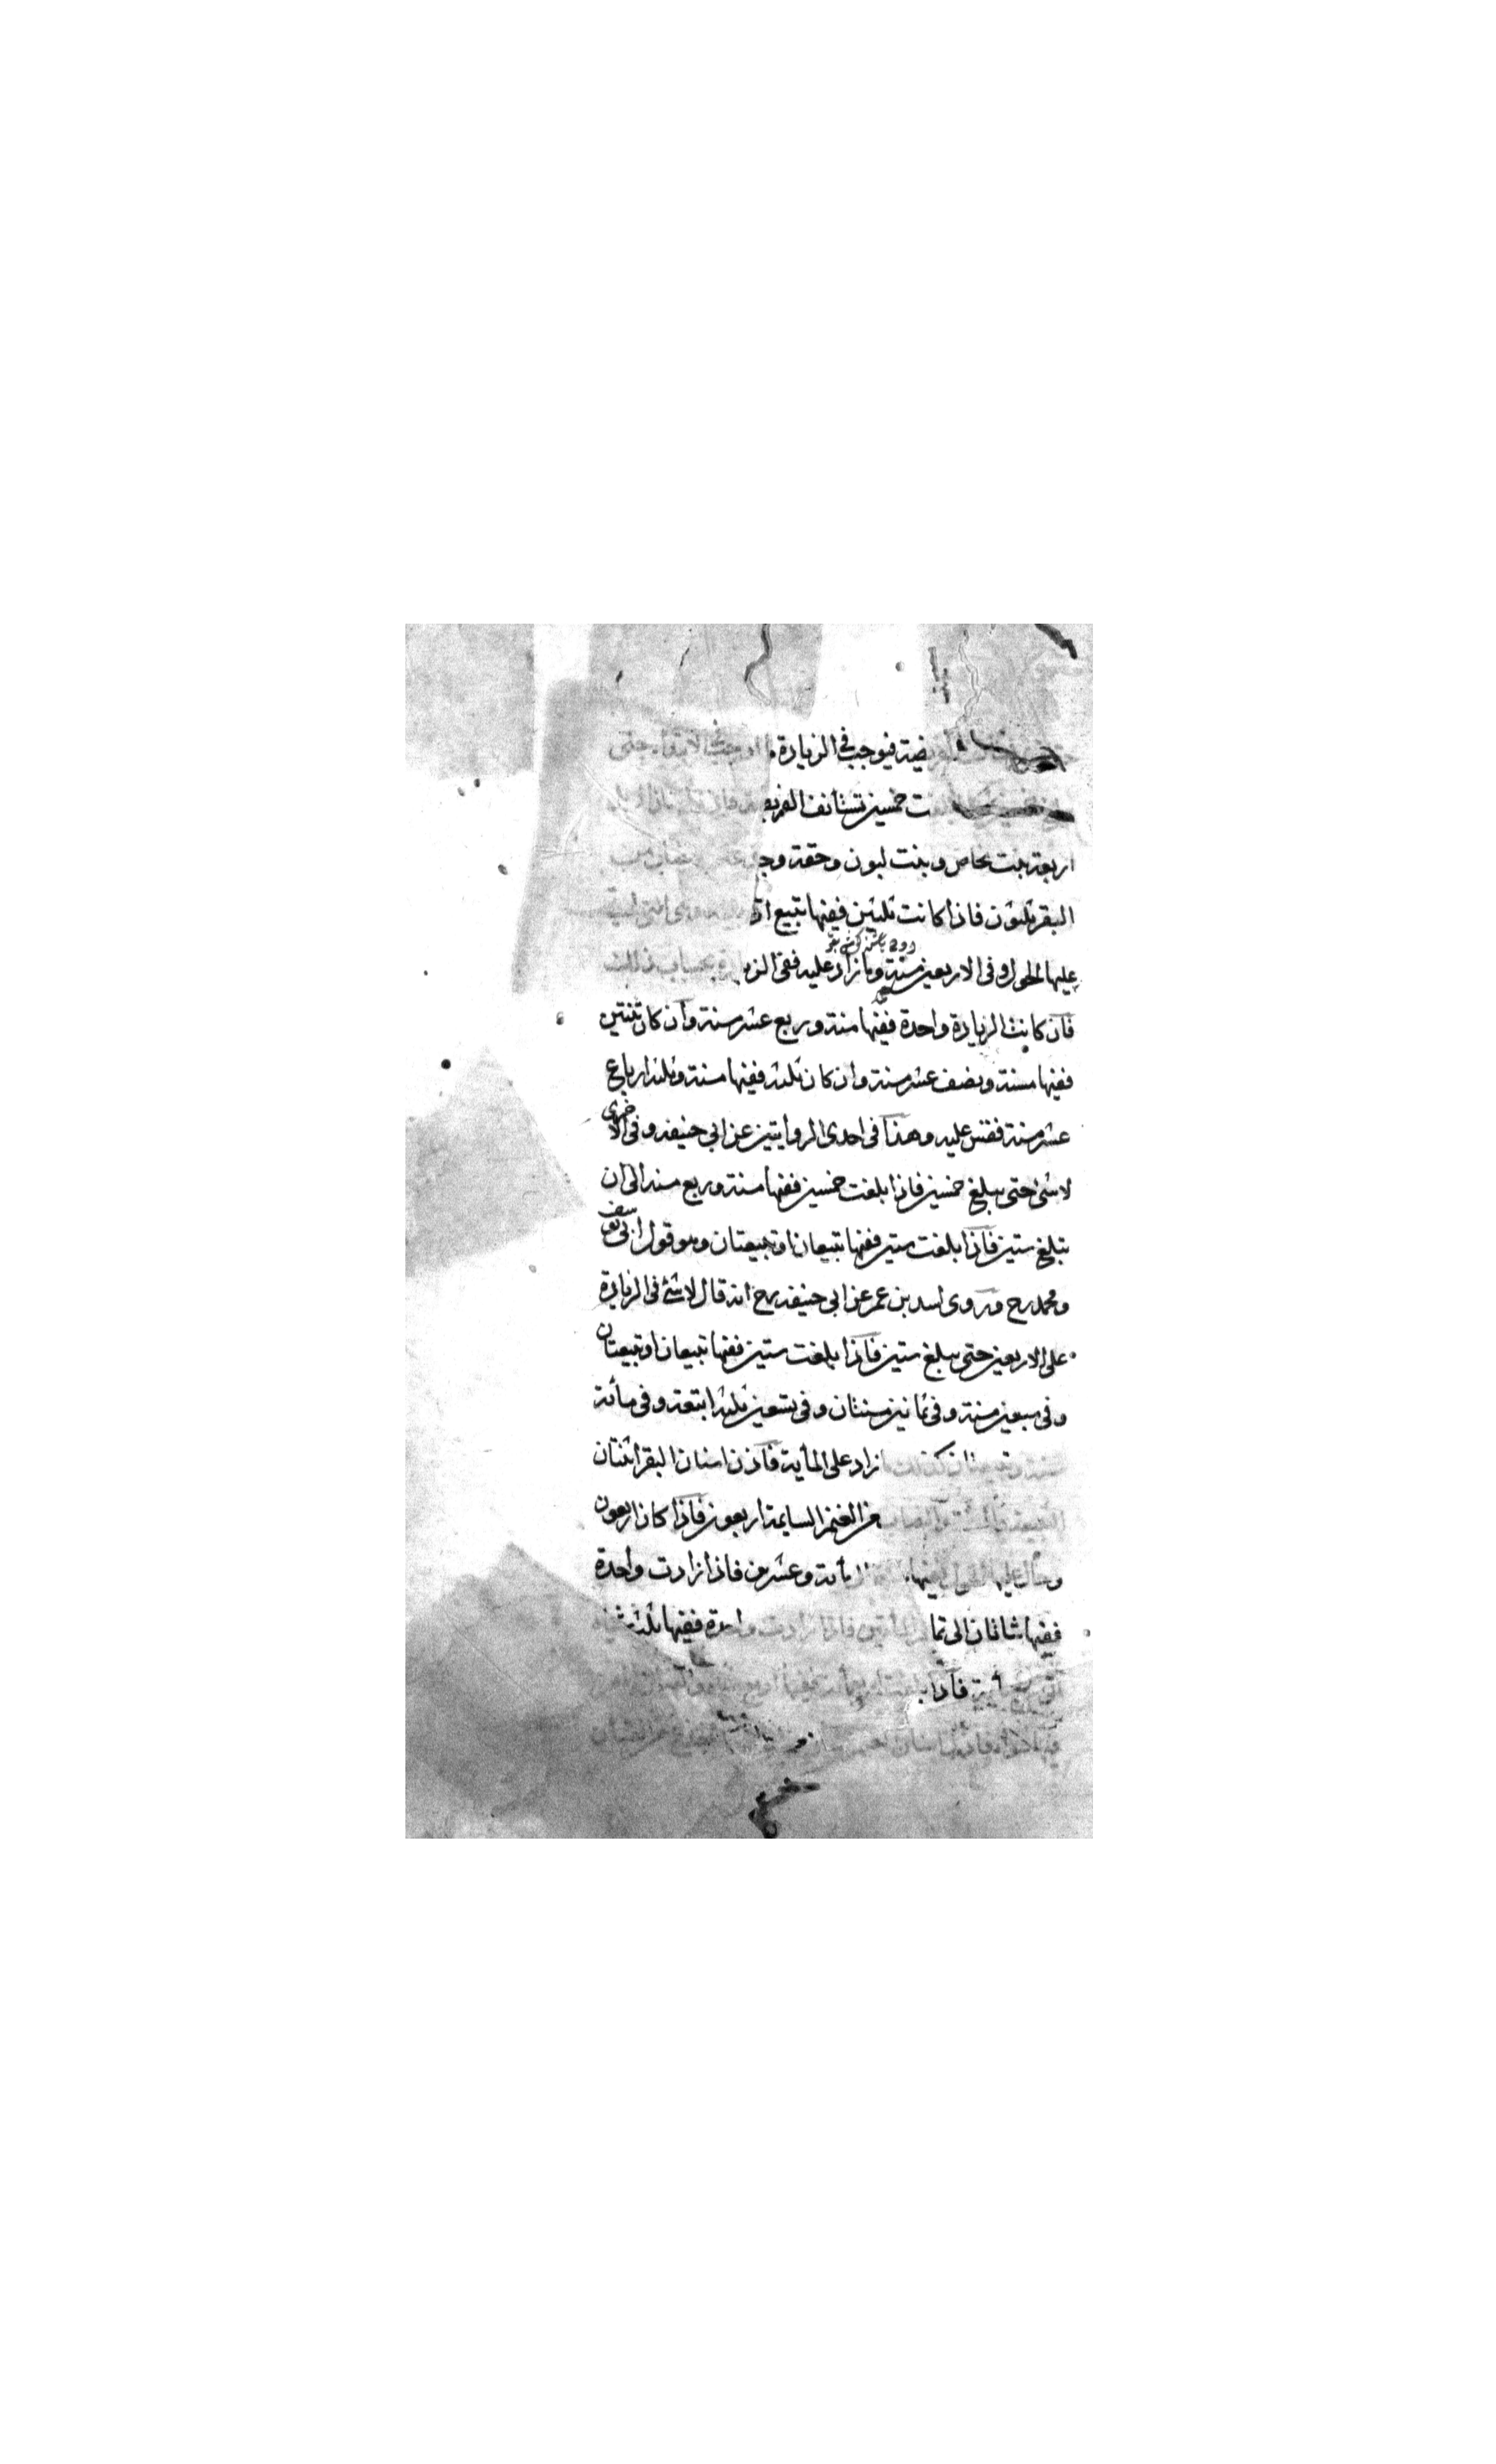 الفريضة فيوجب في الزيادة ما اوجب في الابتداء حتى
بلغت خمسين تستأنف الفريضة
اربعة بنت مخاض وبنت لبون وحقة وجذعة نصاب من
البقر ثلثون فاذا كانت ثلثين ففيها تبيع او
عليها الحول وفى الاربعين مسنة وما زاد عليه ففى الزيادة بحساب ذلك
فان كانت الزيادة واحدة ففيها مسنة وربع عشر مسنة وان كان ثنتين
ففيها مسنة ونصف عشر مسنة وان كان ثلثة ففيها مسنة وثلثة ارباع
عشر مسنة فقس عليه وهذا فى احدى الروايتين عن ابي حنيفة وفى الاخرى
لا شئ حتى يبلغ خمسين فاذا بلغت خمسين ففيها مسنة وربع مسنة الى ان
تبلغ ستين فاذا بلغت ستين ففيها تبيعان او تبيعتان وهو قول ابى يوسف
ومحمد رح وروى اسد بن عمر عن ابي حنيفة رح انه قال لا شئ فى الزيادة
على الاربعين حتى يبلغ ستين فاذا بلغت ستين ففيها تبيعان او تبيعتان
وفى سبعين مسنة وفى ثمانين مسنتان وفى تسعين ثلثة اتبعة وفى مائة
مسنة وتبيعتان كذلك ما زاد على المأية فاذن اسنان البقر اثنتان
التبيعة والمسنة والنصاب من الغنم السايمة اربعون فاذا كان اربعون
وحال عليها الحول ففيها مائة وعشرين فاذا زادت واحدة
ففيها شاتان الى تمام المأتين فاذا زادت واحدة ففيها ثلث شياه
فاذا بلغت اربعمائة ففيها اربع شياه